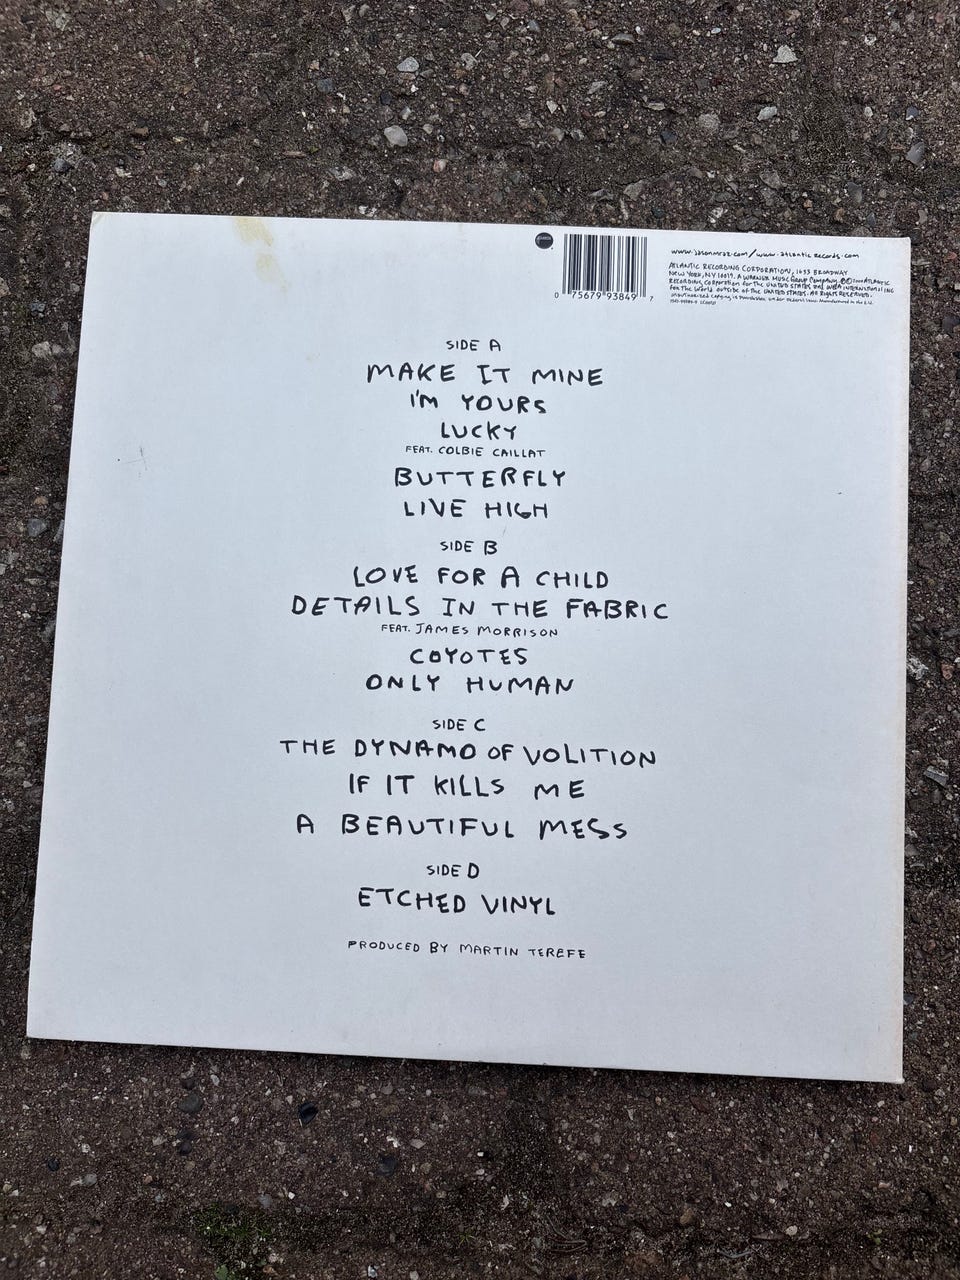 www.jasonmraz.com/www.atlanticrecords.com
ATLANTIC RECORDING CORPORATION, 1633 BROADWAY
NEW YORK, NY 10019. A WARNER MUSIC Group Company.
RECORDING Corporation for the UNITED STATES and WEA INTERNATIONAL INC
for the World outside of the UNITED STATES. All Rights RESERVED.
0 75679 93849 7
SIDE A
MAKE IT MINE
I'M YOURS
LUCKY
FEAT. COLBIE CAILLAT
BUTTERFLY
LIVE HIGH
SIDE B
LOVE FOR A CHILD
DETAILS IN THE FABRIC
FEAT. JAMES MORRISON
COYOTES
ONLY HUMAN
SIDE C
THE DYNAMO OF VOLITION
IF IT KILLS ME
A BEAUTIFUL MESS
SIDE D
ETCHED VINYL
PRODUCED BY MARTIN TEREFE